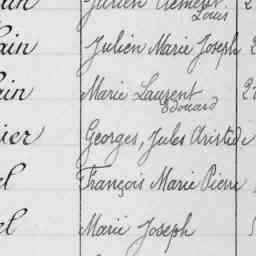 Julien Clément
Louis
ain Julien Marie Joseph 2
ain Marie Laurent 2
Edouard
ier Georges, Jules Aristide
el François Marie Pierre
el Marie Joseph